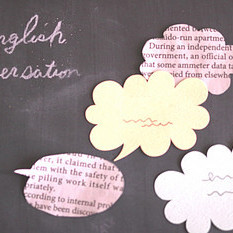 nglish
ersation
ented bet
ido-run apartme
During an independen
government, an official o
that some ammeter data ta
ied from elsewh
er, it claimed that
m with the safety of
e piling work itself wa
riately.
ccording to internal prob
have been discov